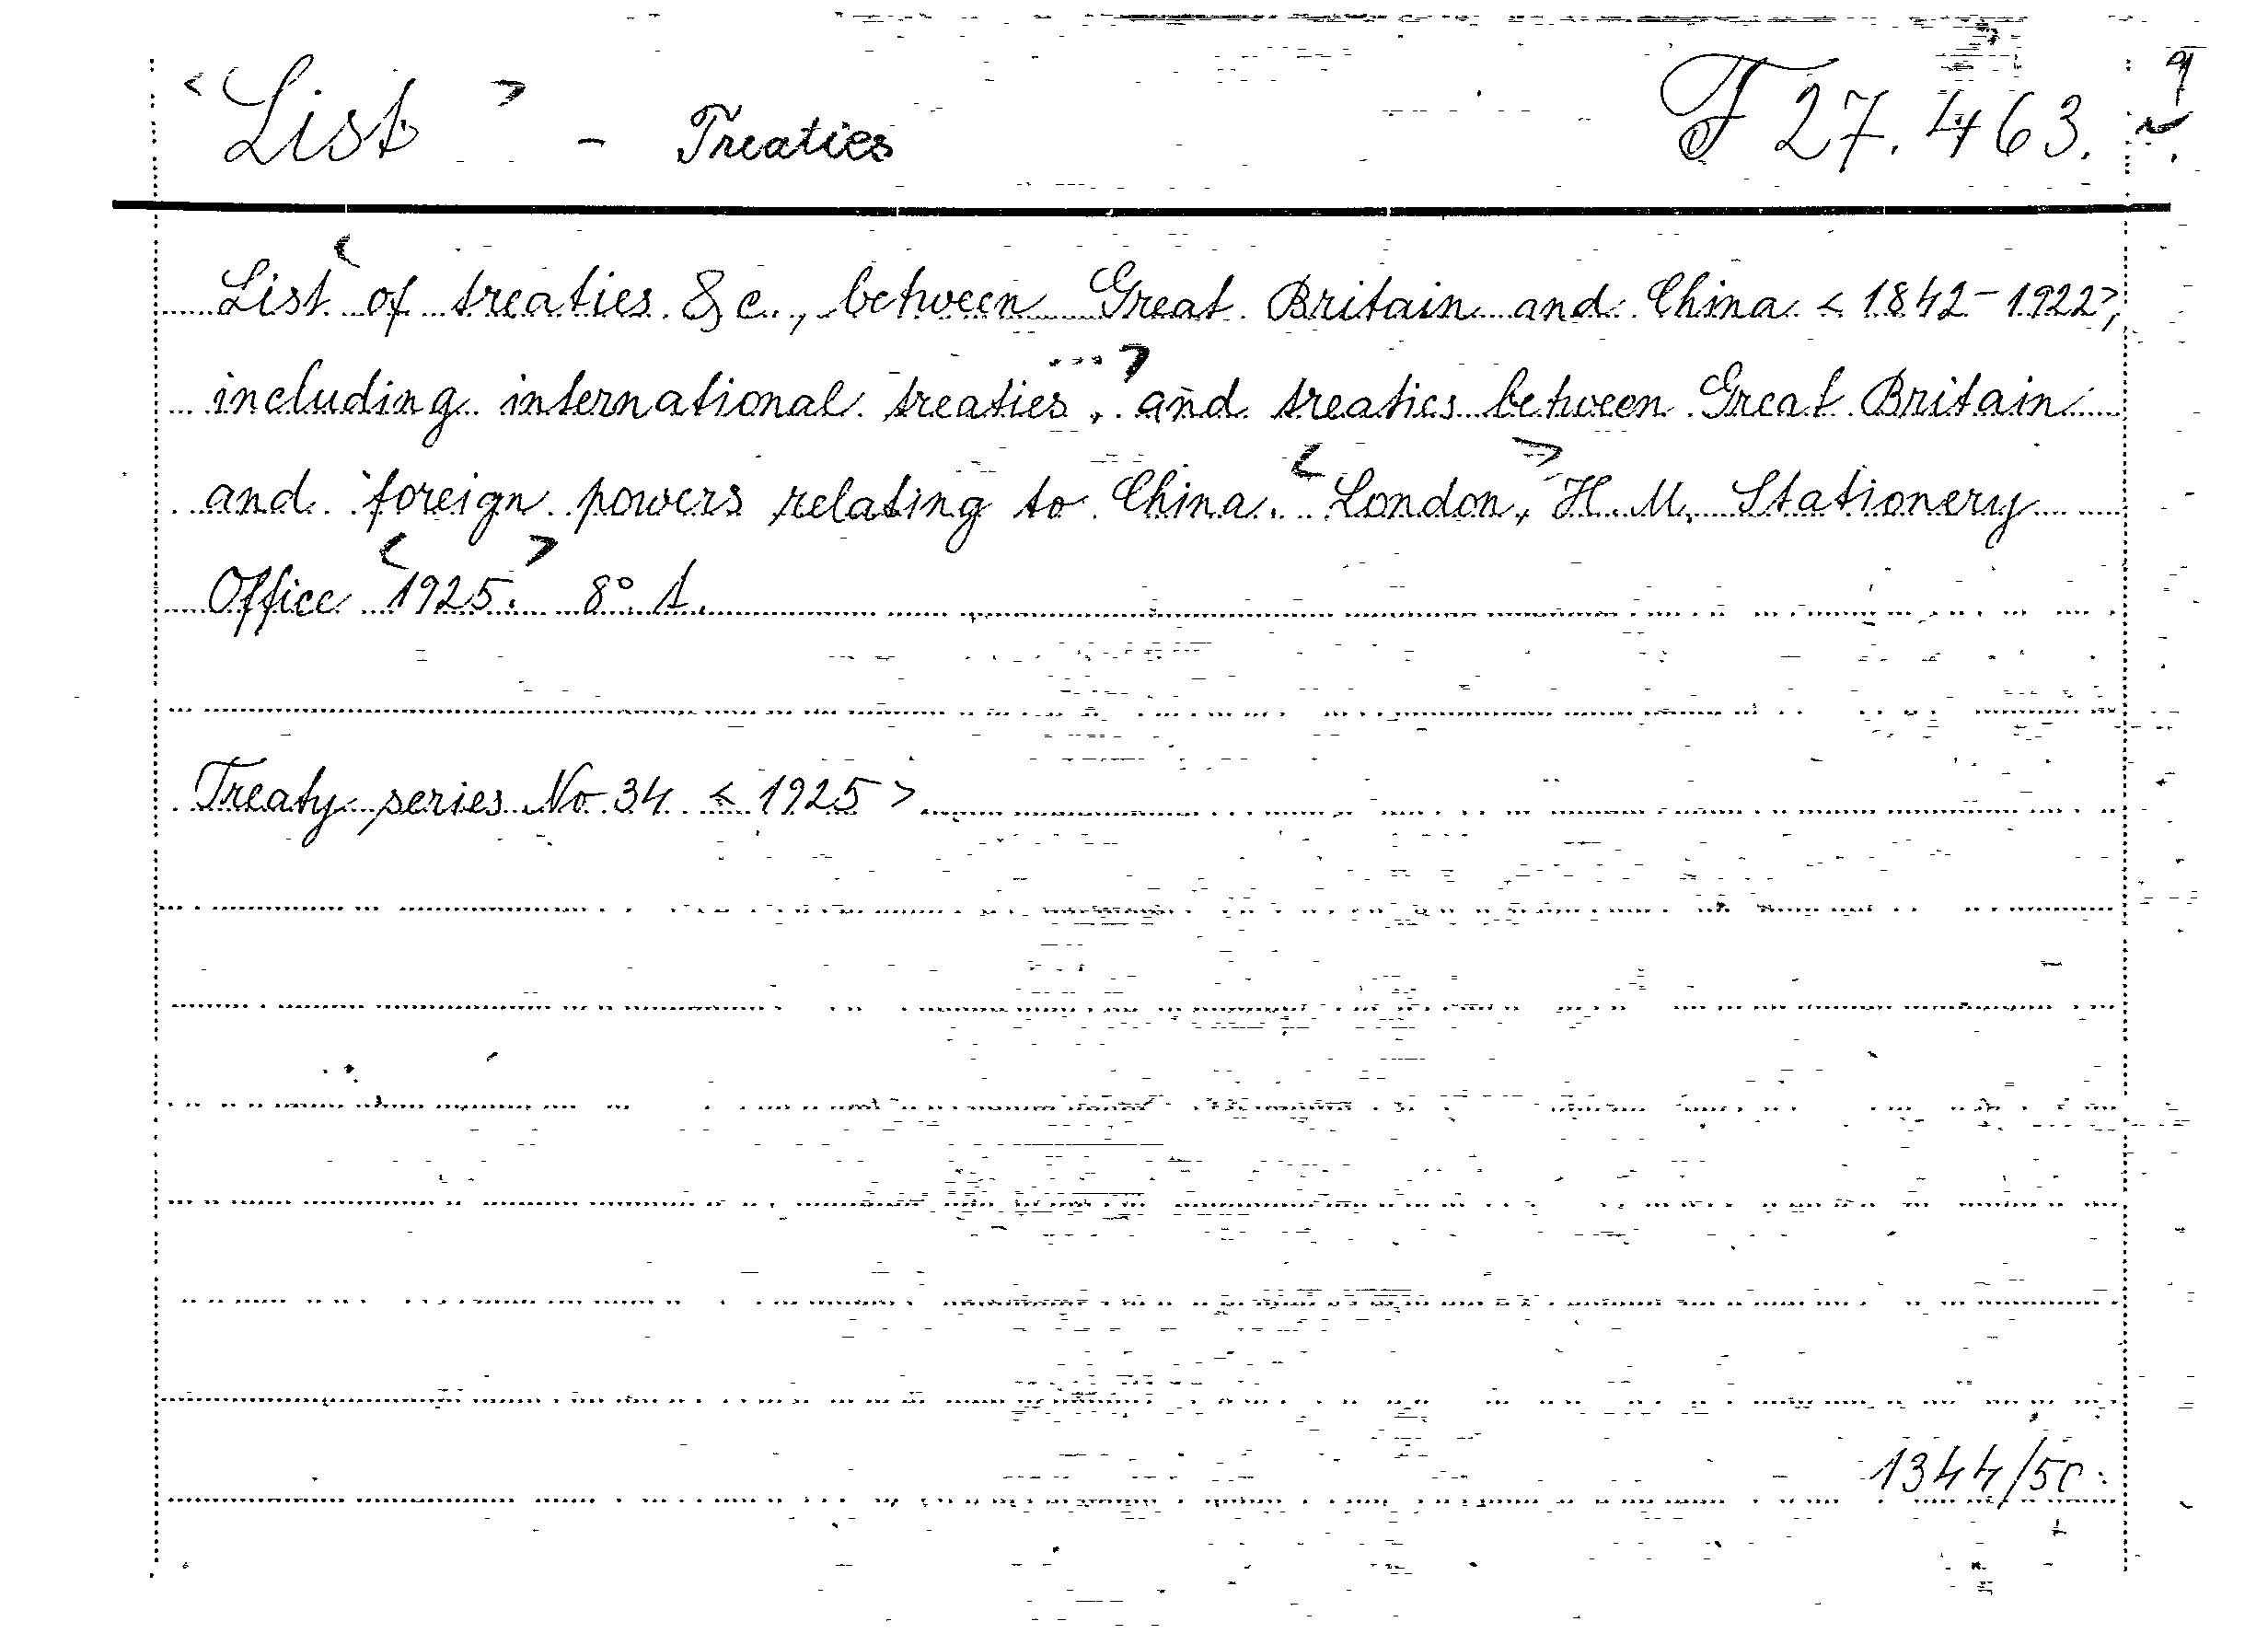 <List> - Treaties F 27.463.
List <of treaties &c., between Great Britain and China <1842-1922>,
including international treaties, ...> and treaties between Great Britain
and foreign powers relating to China. <London,> H. M. Stationery
Office <1925.> 8° A.
Treaty series No 34 <1925>
1344/50.